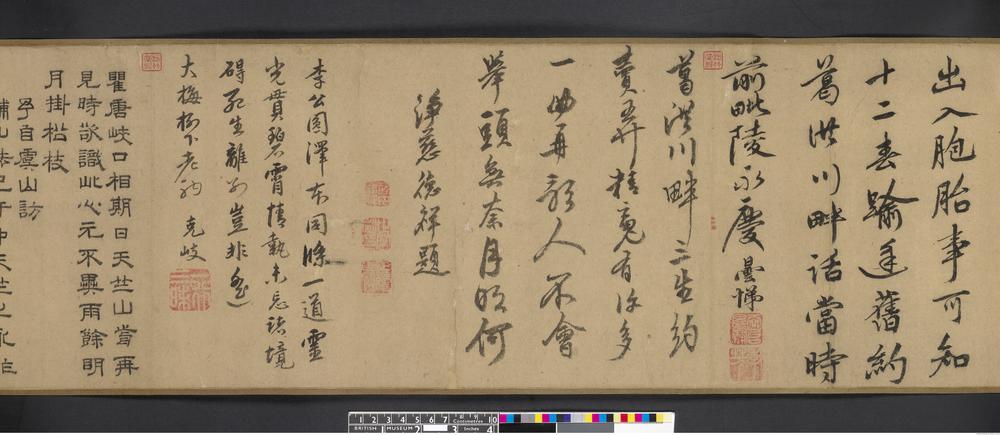 出入胞胎事可知
十二春踰逢舊約
葛洪川畔話當時
前毗陵永慶曇悌
葛洪川畔三生約
賣弄精魂有許多
一曲再歌人不會
舉頭無奈月明何
淨慈德祥題
李公圓澤本同條一道靈
光貫碧霄情執未忘諸境
礙死生離別豈非遙
大梅樹下老衲 克岐
瞿唐峽口相期日天竺山前再
見時欲識此心元不異雨餘明
月掛松枝
予自虞山訪
BRITISH MUSEUM
Centimetres
Inches
1 2 3 4 5 6 7 10
1 2 3 4